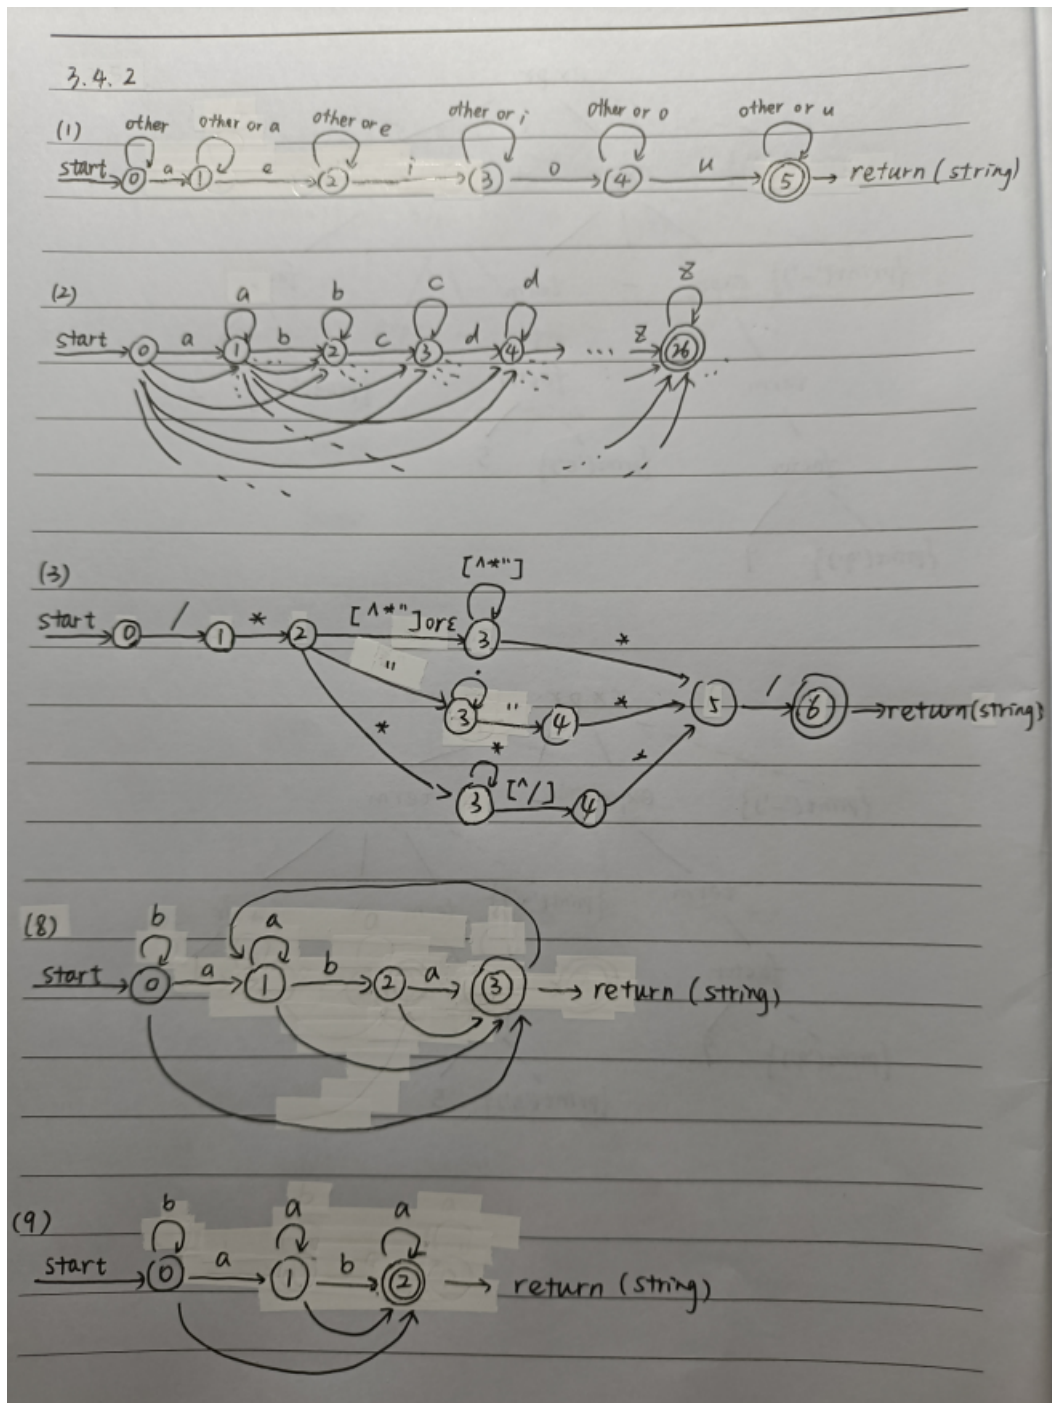 3.4.2
(1) other other or a other or e other or i other or o other or u
start 0 a 1 e 2 i 3 o 4 u 5 return (string)
(2) a b c d z
start 0 a 1 b 2 c 3 d 4 ... z 26
(3) [^*"]
start 0 / 1 * 2 [^*"]orε 3 *
" . 3 " 4 * 5 / 6 return(string)
* * 3 [^/] 4 *
(8) b a
start 0 a 1 b 2 a 3 return (string)
(9) b a a
start 0 a 1 b 2 return (string)